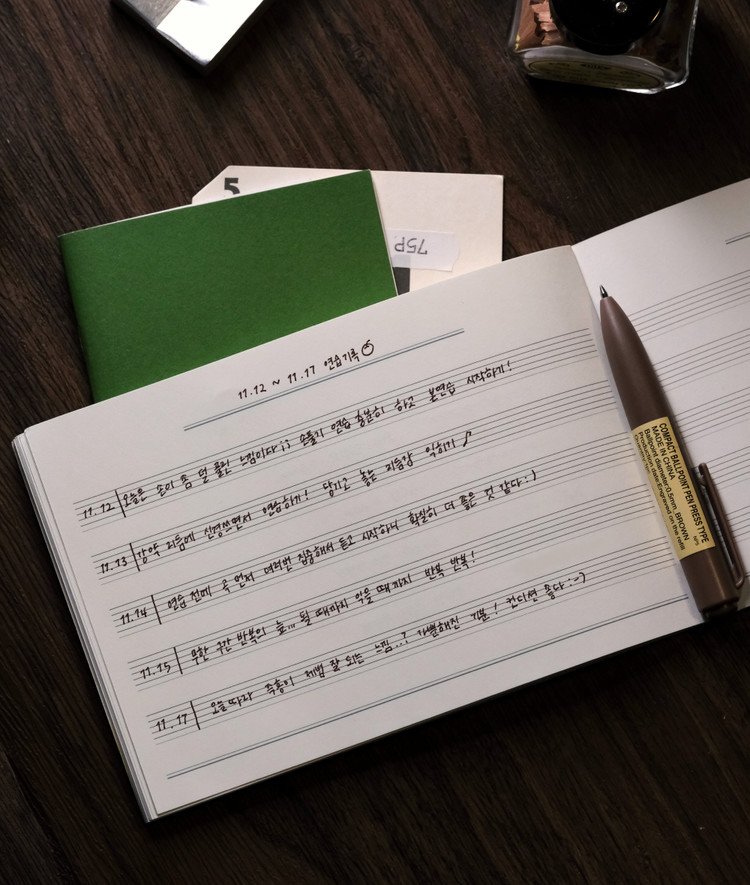 5
75P
11.12 ~ 11.17 연습기록
11.12 오늘은 손이 좀 덜 풀린 느낌이다;; 손풀기 연습 충분히 하고 본연습 시작하기!
11.13 강약 리듬에 신경쓰면서 연습하기! 당기고 놓는 리듬감 익히기 ♪
11.14 연습 전에 곡 먼저 여러번 집중해서 듣고 시작하니 확실히 더 좋은 것 같다:)
11.15 무한 구간 반복의 늪,,, 될 때까지 익을 때까지 반복 반복!
11.17 오늘따라 즉흥이 제법 잘 되는 느낌..? 가뿐해진 기분! 컨디션 좋다:-)
COMPACT BALLPOINT PEN PRESS TYPE
MADE IN CHINA
Ballpoint diameter:0.5mm, BROWN
Production date:Engraved on the refill